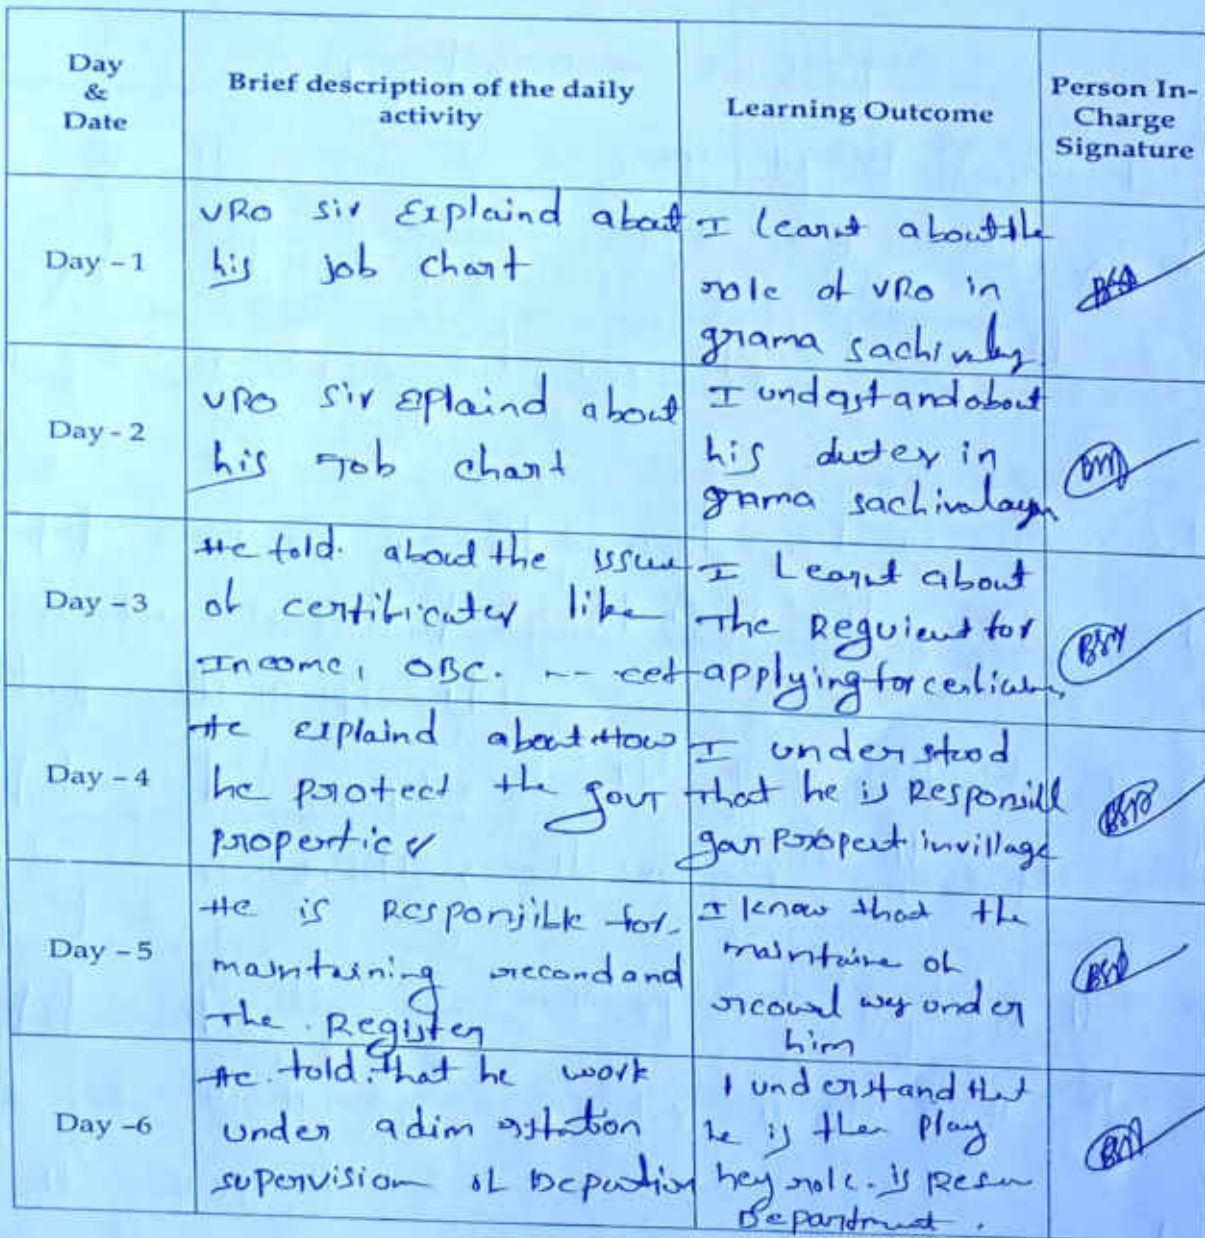 Day
&
Date
Brief description of the daily
activity
Learning Outcome
Person In-
Charge
Signature
Day - 1
VRO sir Explaind about
his job chart
I learnt about the
role of VRO in
grama
Day - 2
VRO Sir Eplaind about
his Job chart
I undastand about
his duter in
grama sachivalaya
Day - 3
He told. about the issue
of certificates like
Income, OBC. -- cet
I Learnt about
The for
applying for
Day - 4
He explaind about How
he protect the govt
properties
I understood
that he is Responsill
in village
Day - 5
He is Responsible for.
maintaining record and
The. Register
I know that the
maintaine of
under
him
Day -6
He. told. that he work
under
supervision of
I understand that
he is then play
key role. is
Department.